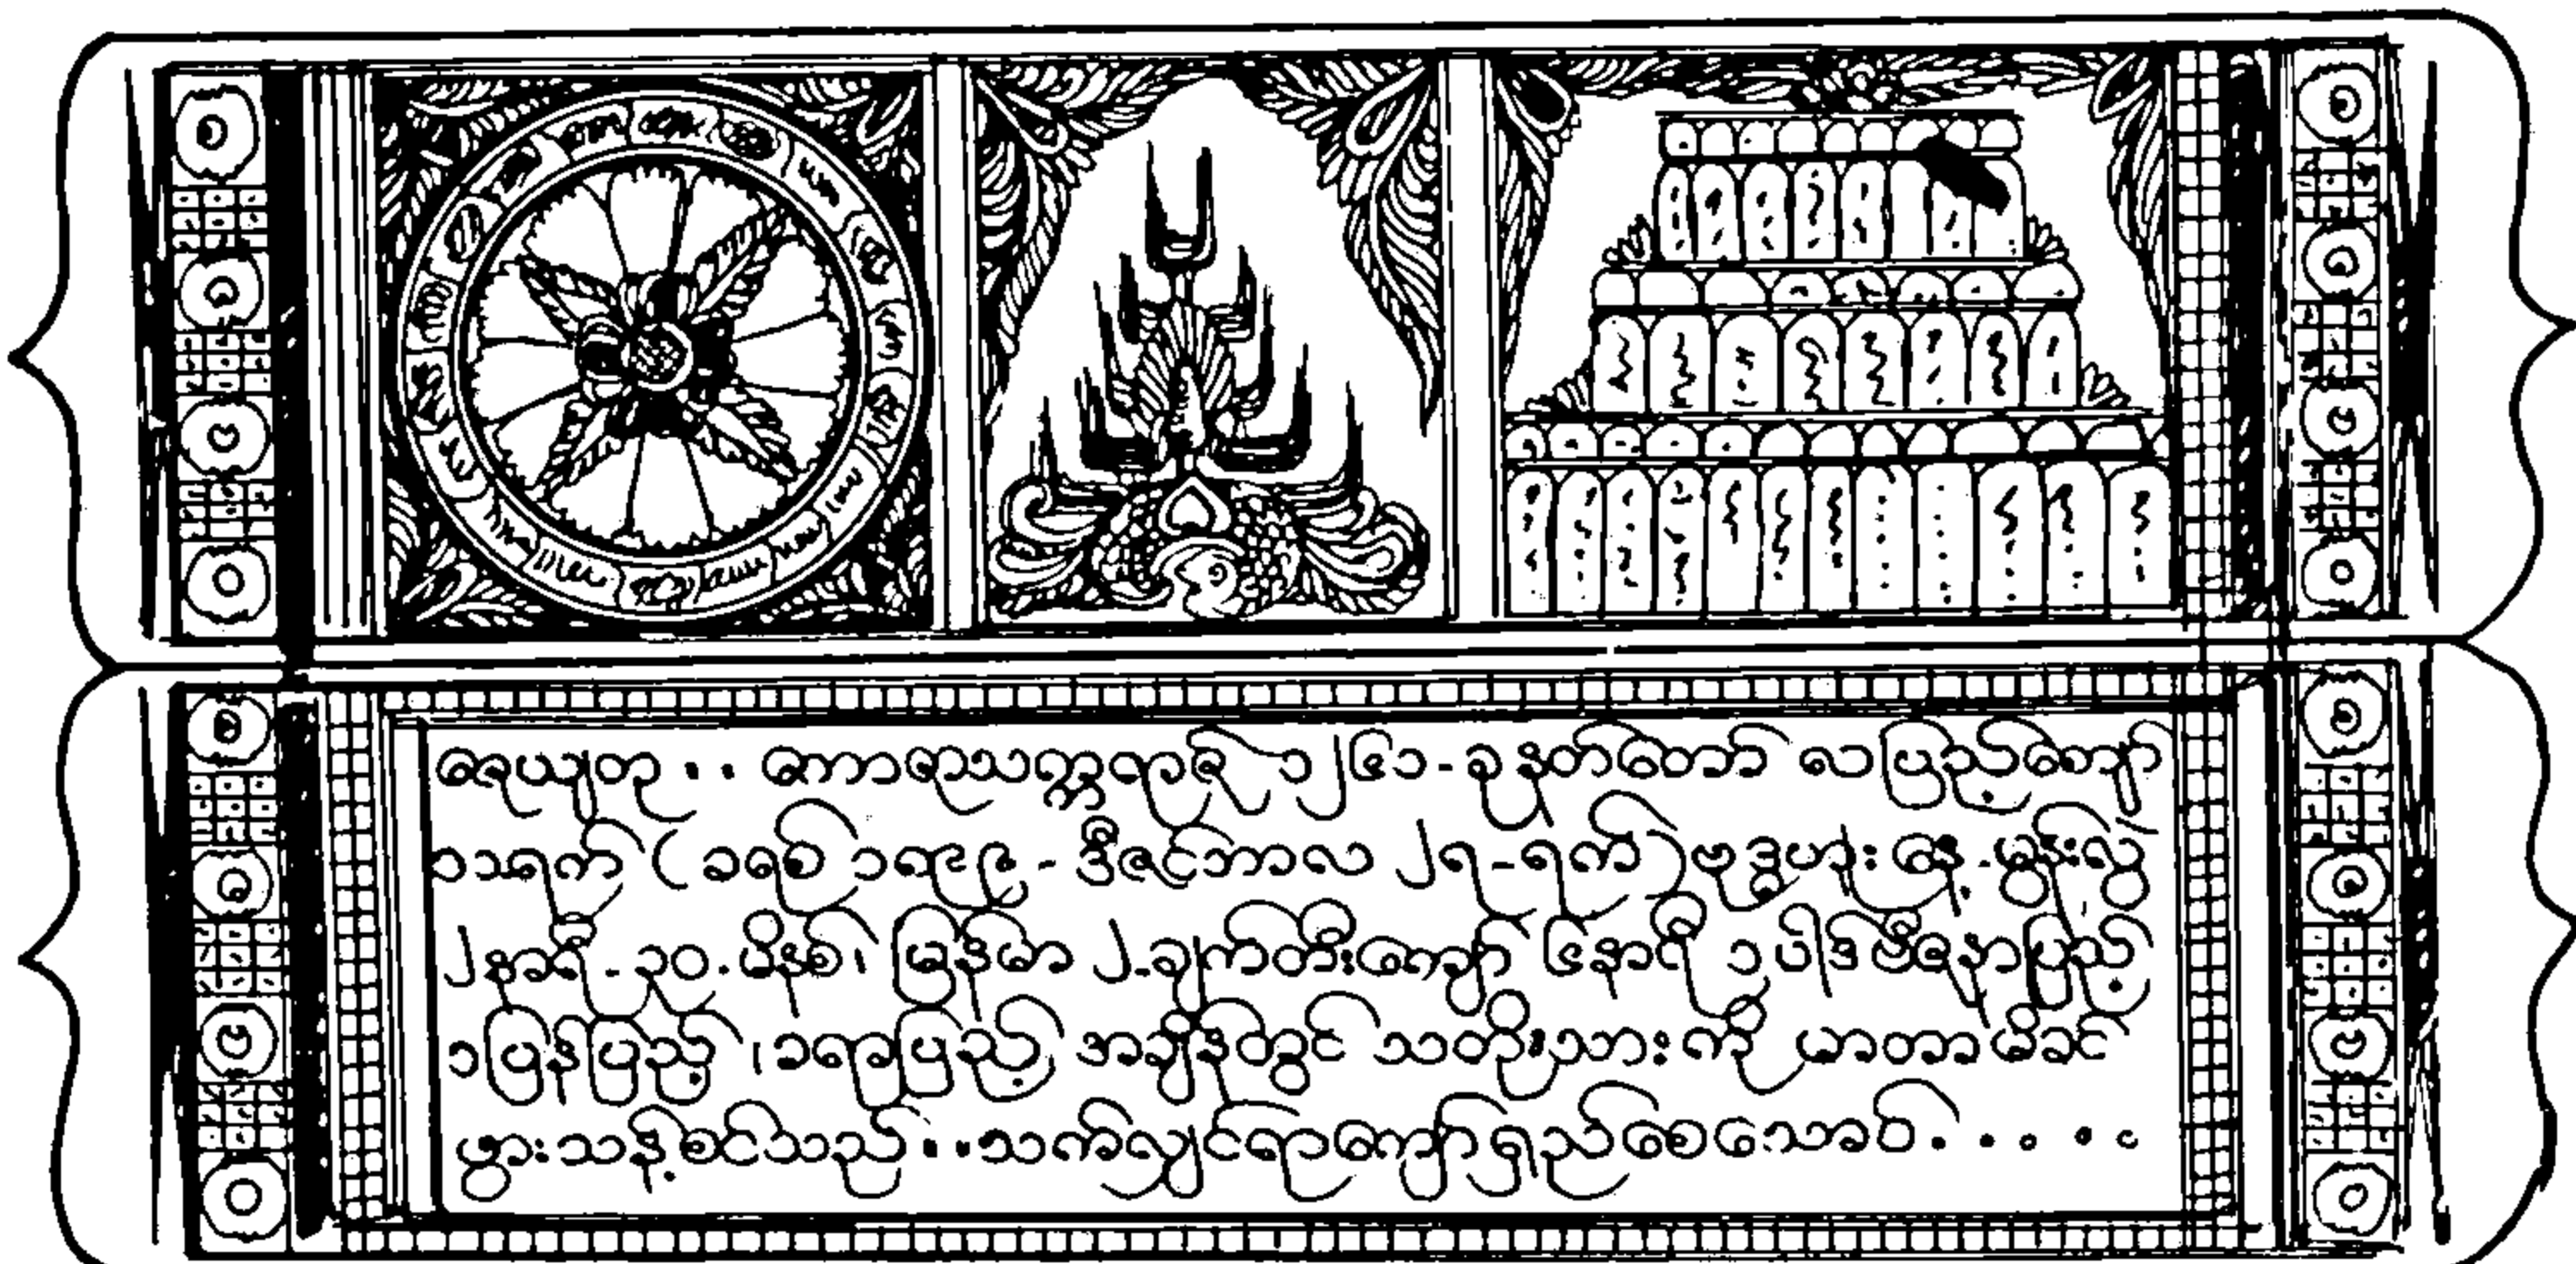 ဇေယျတု . . ကောဇာသက္ကရာဇ် ၁၂၆၁-ခု နတ်တော် လပြည့်ကျော်
၁၁ရက် ( ခရစ် ၁၈၉၉ - ဒီဇင်ဘာလ ၂၇-ရက် ) ဗုဒ္ဓဟူးနေ့-မွန်းလွဲ
၂နာရီ - ၃၀. မိနစ်၊ မြန်မာ ၂-ချက်တီးကျော် ၆နာရီ ၁ပါဒ် ဗီဇနာပြည့်
၁ပြန်ပြည့် ၊ခရာပြည့် အချိန်တွင် သတိုးသားကို မာတာမိခင်
ဖွားသန့်စင်သည် . . သက်လျှင်ရာကျော်ရှည်စေသောဝ် . . . . .